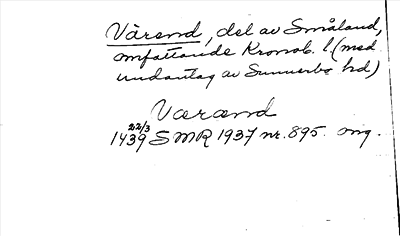 Värend, del av Småland,
omfattande Kronob. l. (med
undantag av Sunnerbo hd)
Værænd
22/3
1439 SMR 1937 nr. 895. orig.